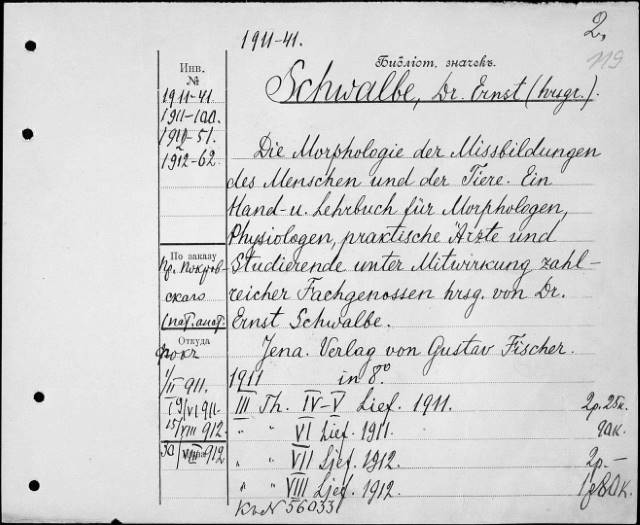 1911-41.
2.
119
Библіот. значекъ.
Schwalbe, Dr. Ernst (hrsgr.).
Инв. №
1911-41.
1911-100.
1911-51.
1912-62.
Die Morphologie der Missbildungen
des Menschen und der Tiere. Ein
Hand- u. Lehrbuch für Morphologen,
Physiologen, praktische Ärzte und
Studierende unter Mitwirkung zahl-
reicher Fachgenossen hrsg. von Dr.
Ernst Schwalbe.
По заказу
пр. Покров-
скаго
(пат. анат.
Откуда
Jena. Verlag von Gustav Fischer.
1911 in 8º
1/II 911.
19/VI 911.
15/VIII 912.
30/VIII 912
III Th. IV-V Lief. 1911. 2р. 25к.
" " VI Lief. 1911. 90к.
" " VII Lief. 1912. 2р.-
" " VIII Lief. 1912. 1р80к.
56033